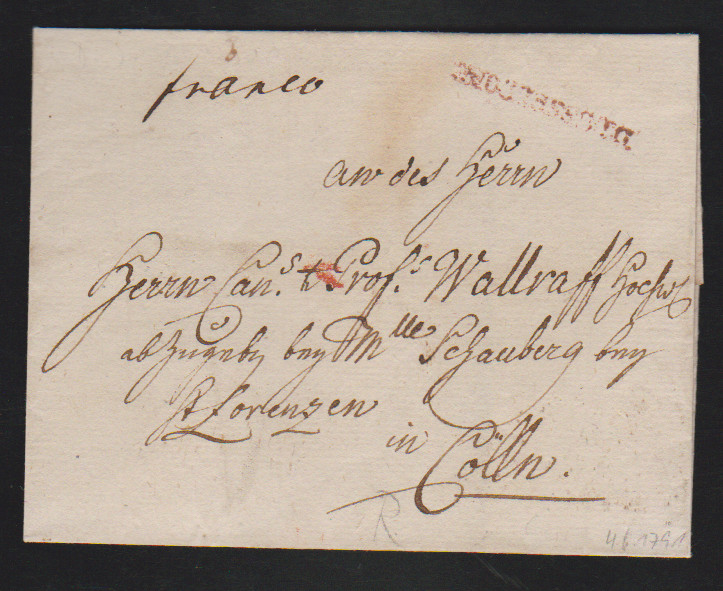 franco
an des Herrn
Herrn Can.s & Prof.s Wallraff Hochw
abzugeben bey Mlle Schauberg bey
St Lorenzen
in Cölln.
R
4.6.1791